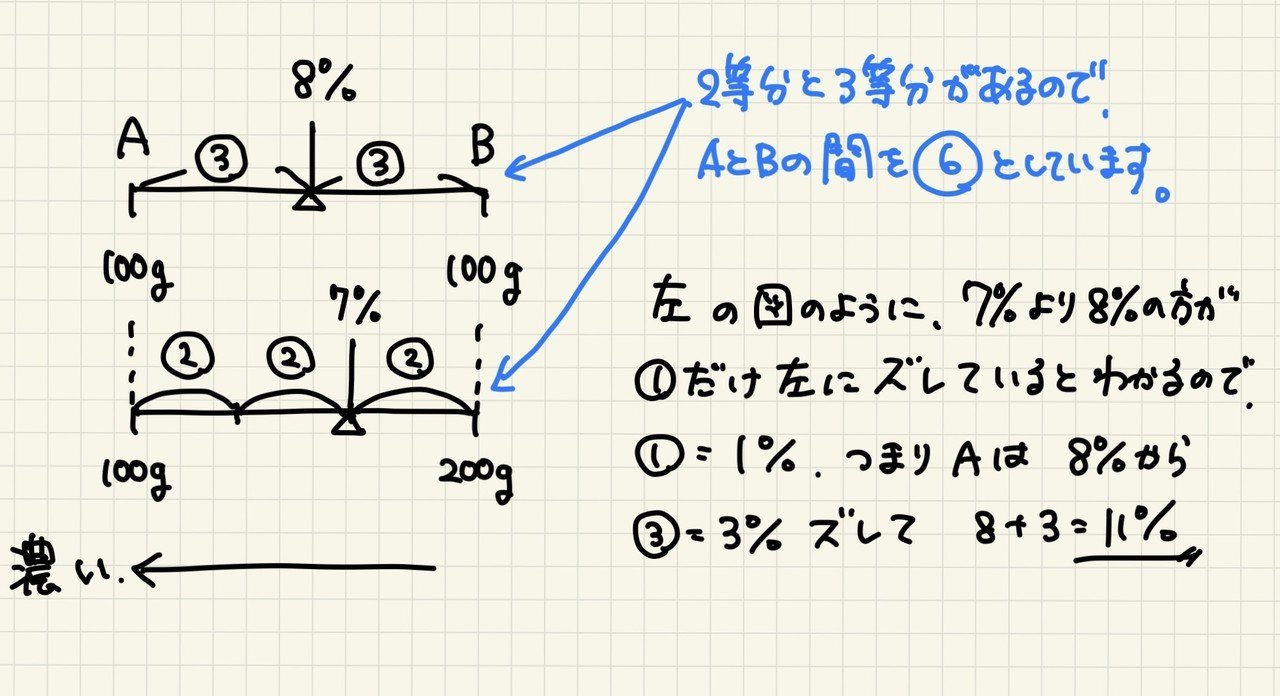 8%
A ③ ③ B
100g 100g
7%
② ② ②
100g 200g
濃い.
2等分と3等分があるので.
AとBの間を⑥としています。
左の図のように、7%より8%の方が
①だけ左にズレているとわかるので.
①=1%. つまりAは 8%から
③=3% ズレて 8+3=11%